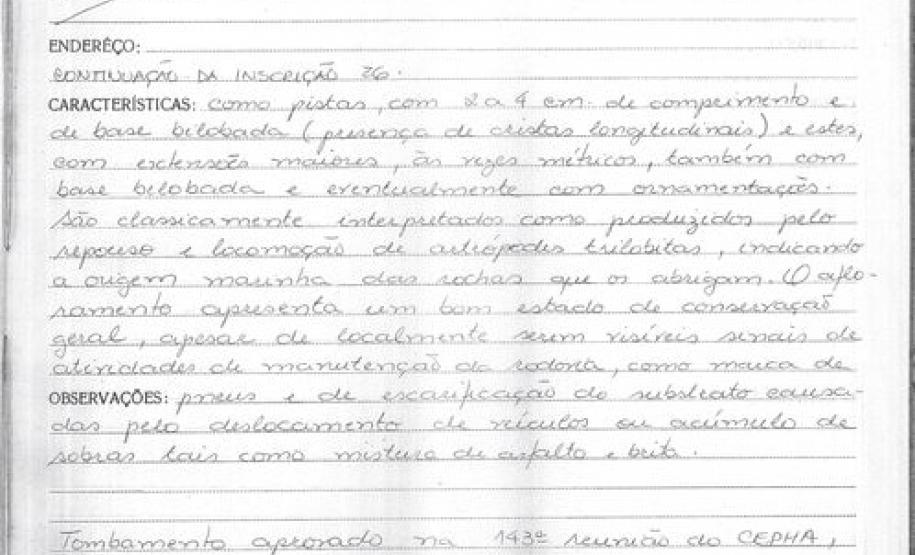 ENDERÊÇO:
CONTINUAÇÃO DA INSCRIÇÃO 26.
CARACTERÍSTICAS: como pistas, com 2 a 4 cm. de comprimento e
de base bilobada (presença de cristas longitudinais) e estes,
com extensões maiores, às vezes métricos, também com
base bilobada e eventualmente com ornamentações.
São classicamente interpretados como produzidos pelo
repouso e locomoção de artrópodes trilobitas, indicando
a origem marinha das rochas que os abrigam. O aflo-
ramento apresenta um bom estado de conservação
geral, apesar de localmente serem visíveis sinais de
atividades de manutenção da rodovia, como marca de
OBSERVAÇÕES: pneus e de escarificação do substrato causa-
das pelo deslocamento de veículos ou acúmulo de
sobras tais como mistura de asfalto e brita.
Tombamento aprovado na 143ª reunião do CEPHA,